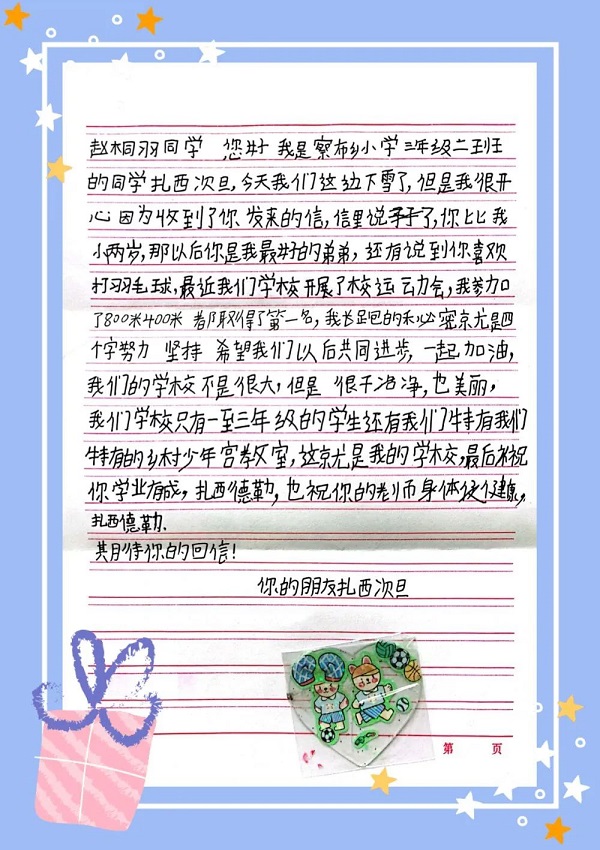 赵桐羽同学 您好 我是察布乡小学三年级二班班
的同学扎西次旦,今天我们这边下雪了,但是我很开
心因为收到了你发来的信,信里说了,你比我
小两岁,那以后你是我最好的弟弟,还有说到你喜欢
打羽毛球,最近我们学校开展了校运动会,我参加
了800米400米都取得了第一名,我长跑的秘密就是四
个字努力 坚持 希望我们以后共同进步,一起加油,
我们的学校不是很大,但是 很干净,也美丽,
我们学校只有一至三年级的学生还有我们特有我们
特有的乡村少年宫教室,这就是我的学校,最后祝
你学业有成,扎西德勒,也祝你的老师身体健康,
扎西德勒.
期待你的回信!
你的朋友扎西次旦
第 页